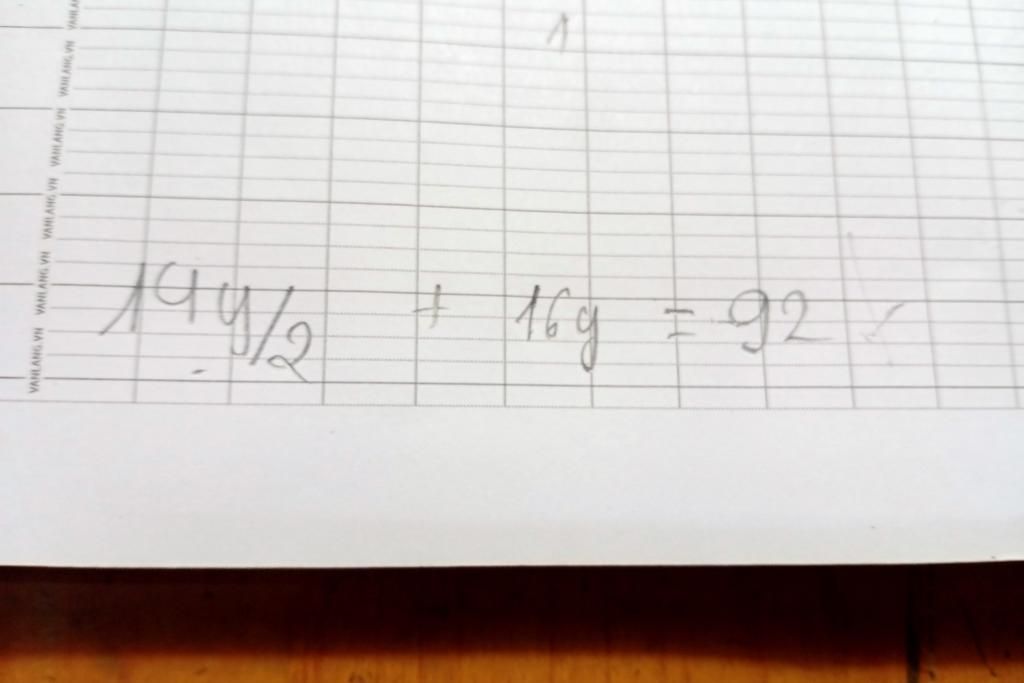 1
14y/2 + 16y = 92
VANLANG.VN VANLANG.VN VANLANG.VN VANLANG.VN VANLANG.VN